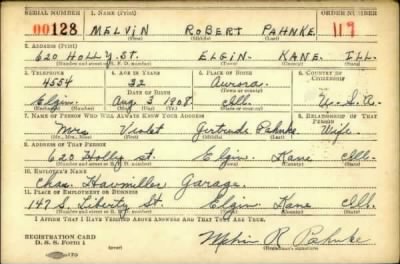 SERIAL NUMBER 1. NAME (Print) ORDER NUMBER
00128 MELVIN ROBERT PAHNKE 117
(First) (Middle) (Last)
2. ADDRESS (Print)
620 HOLLY ST. ELGIN- KANE, ILL.
(Number and street or R. F. D. number) (Town) (County) (State)
3. TELEPHONE 4. AGE IN YEARS 5. PLACE OF BIRTH 6. COUNTRY OF CITIZENSHIP
4554 32 Aurora.
DATE OF BIRTH (Town or county)
Elgin. Aug 3 1908. Ill. U.S.A.
(Exchange) (Number) (Mo.) (Day) (Yr.) (State or country)
7. NAME OF PERSON WHO WILL ALWAYS KNOW YOUR ADDRESS 8. RELATIONSHIP OF THAT PERSON
Mrs Violet Gertrude Pahnke. Wife.
(Mr., Mrs., Miss) (First) (Middle) (Last)
9. ADDRESS OF THAT PERSON
620 Holly St. Elgin. Kane Ill.
(Number and street or R. F. D. number) (Town) (County) (State)
10. EMPLOYER'S NAME
Chas. Haumiller Garage.
11. PLACE OF EMPLOYMENT OR BUSINESS
147 S. Liberty St. Elgin Kane Ill.
(Number and street or R. F. D. number) (Town) (County) (State)
I AFFIRM THAT I HAVE VERIFIED ABOVE ANSWERS AND THAT THEY ARE TRUE.
REGISTRATION CARD
D. S. S. Form 1 (over) Melvin R Pahnke
(Registrant's signature)